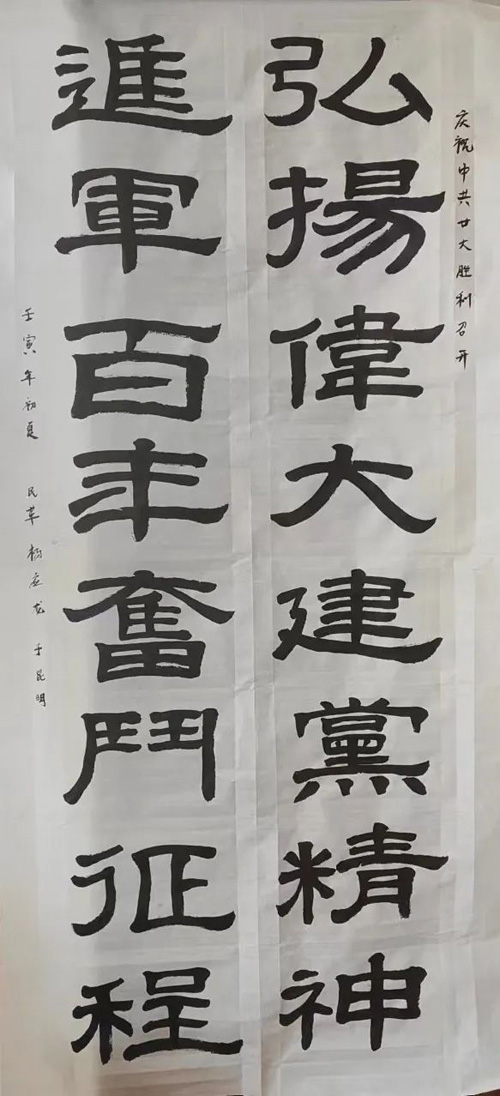 庆祝中共廿大胜利召开
弘揚偉大建黨精神
進軍百年奮鬥征程
壬寅年初夏 民革 杨应龙 于昆明